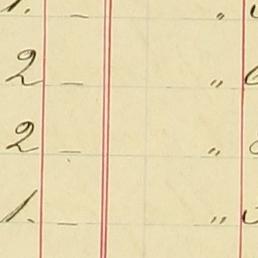 1. — „
2 — „
2 — „
1. — „